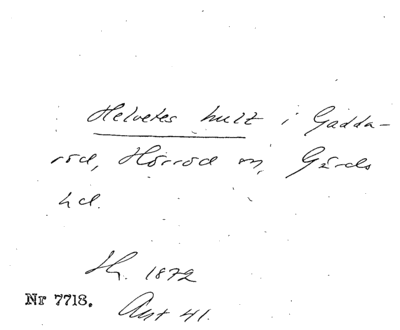 Helvetes hult i Gadda-
röd, Hörröd sn, Gärds
hd.
Hh. 1872
Nr 7718.
Ant 41.